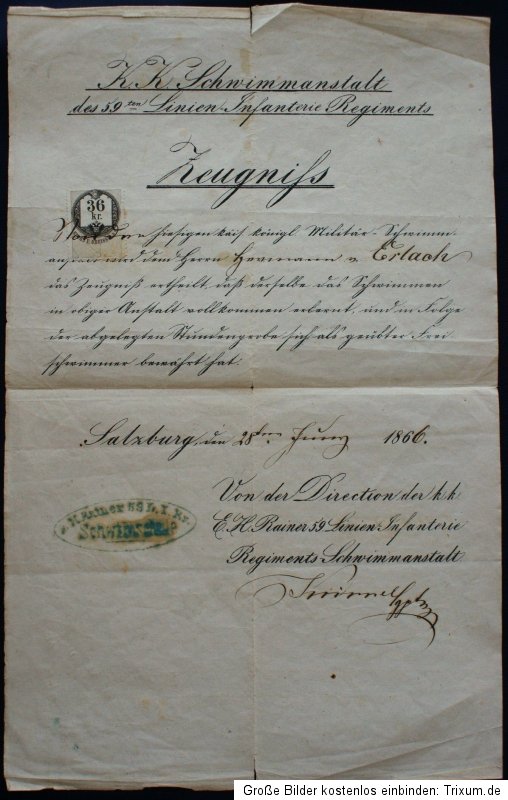 K. K. Schwimmanstalt
des 59ten Linien-Infanterie Regiments
Zeugniss
36
kr.
Von der hiesigen kais. königl. Militär-Schwimm-
anstalt wird dem Herrn Hermann v. Erlach
das Zeugniß ertheilt, daß derselbe das Schwimmen
in obiger Anstalt vollkommen erlernt, und in Folge
der abgelegten Stundenprobe sich als geübter Frei-
schwimmer bewährt hat.
Salzburg, den 28ten 1866.
Von der Direction der k. k.
E. H. Rainer 59 Linien-Infanterie
Regiments Schwimmanstalt
Rainer 59 L. I.
Große Bilder kostenlos einbinden: Trixum.de